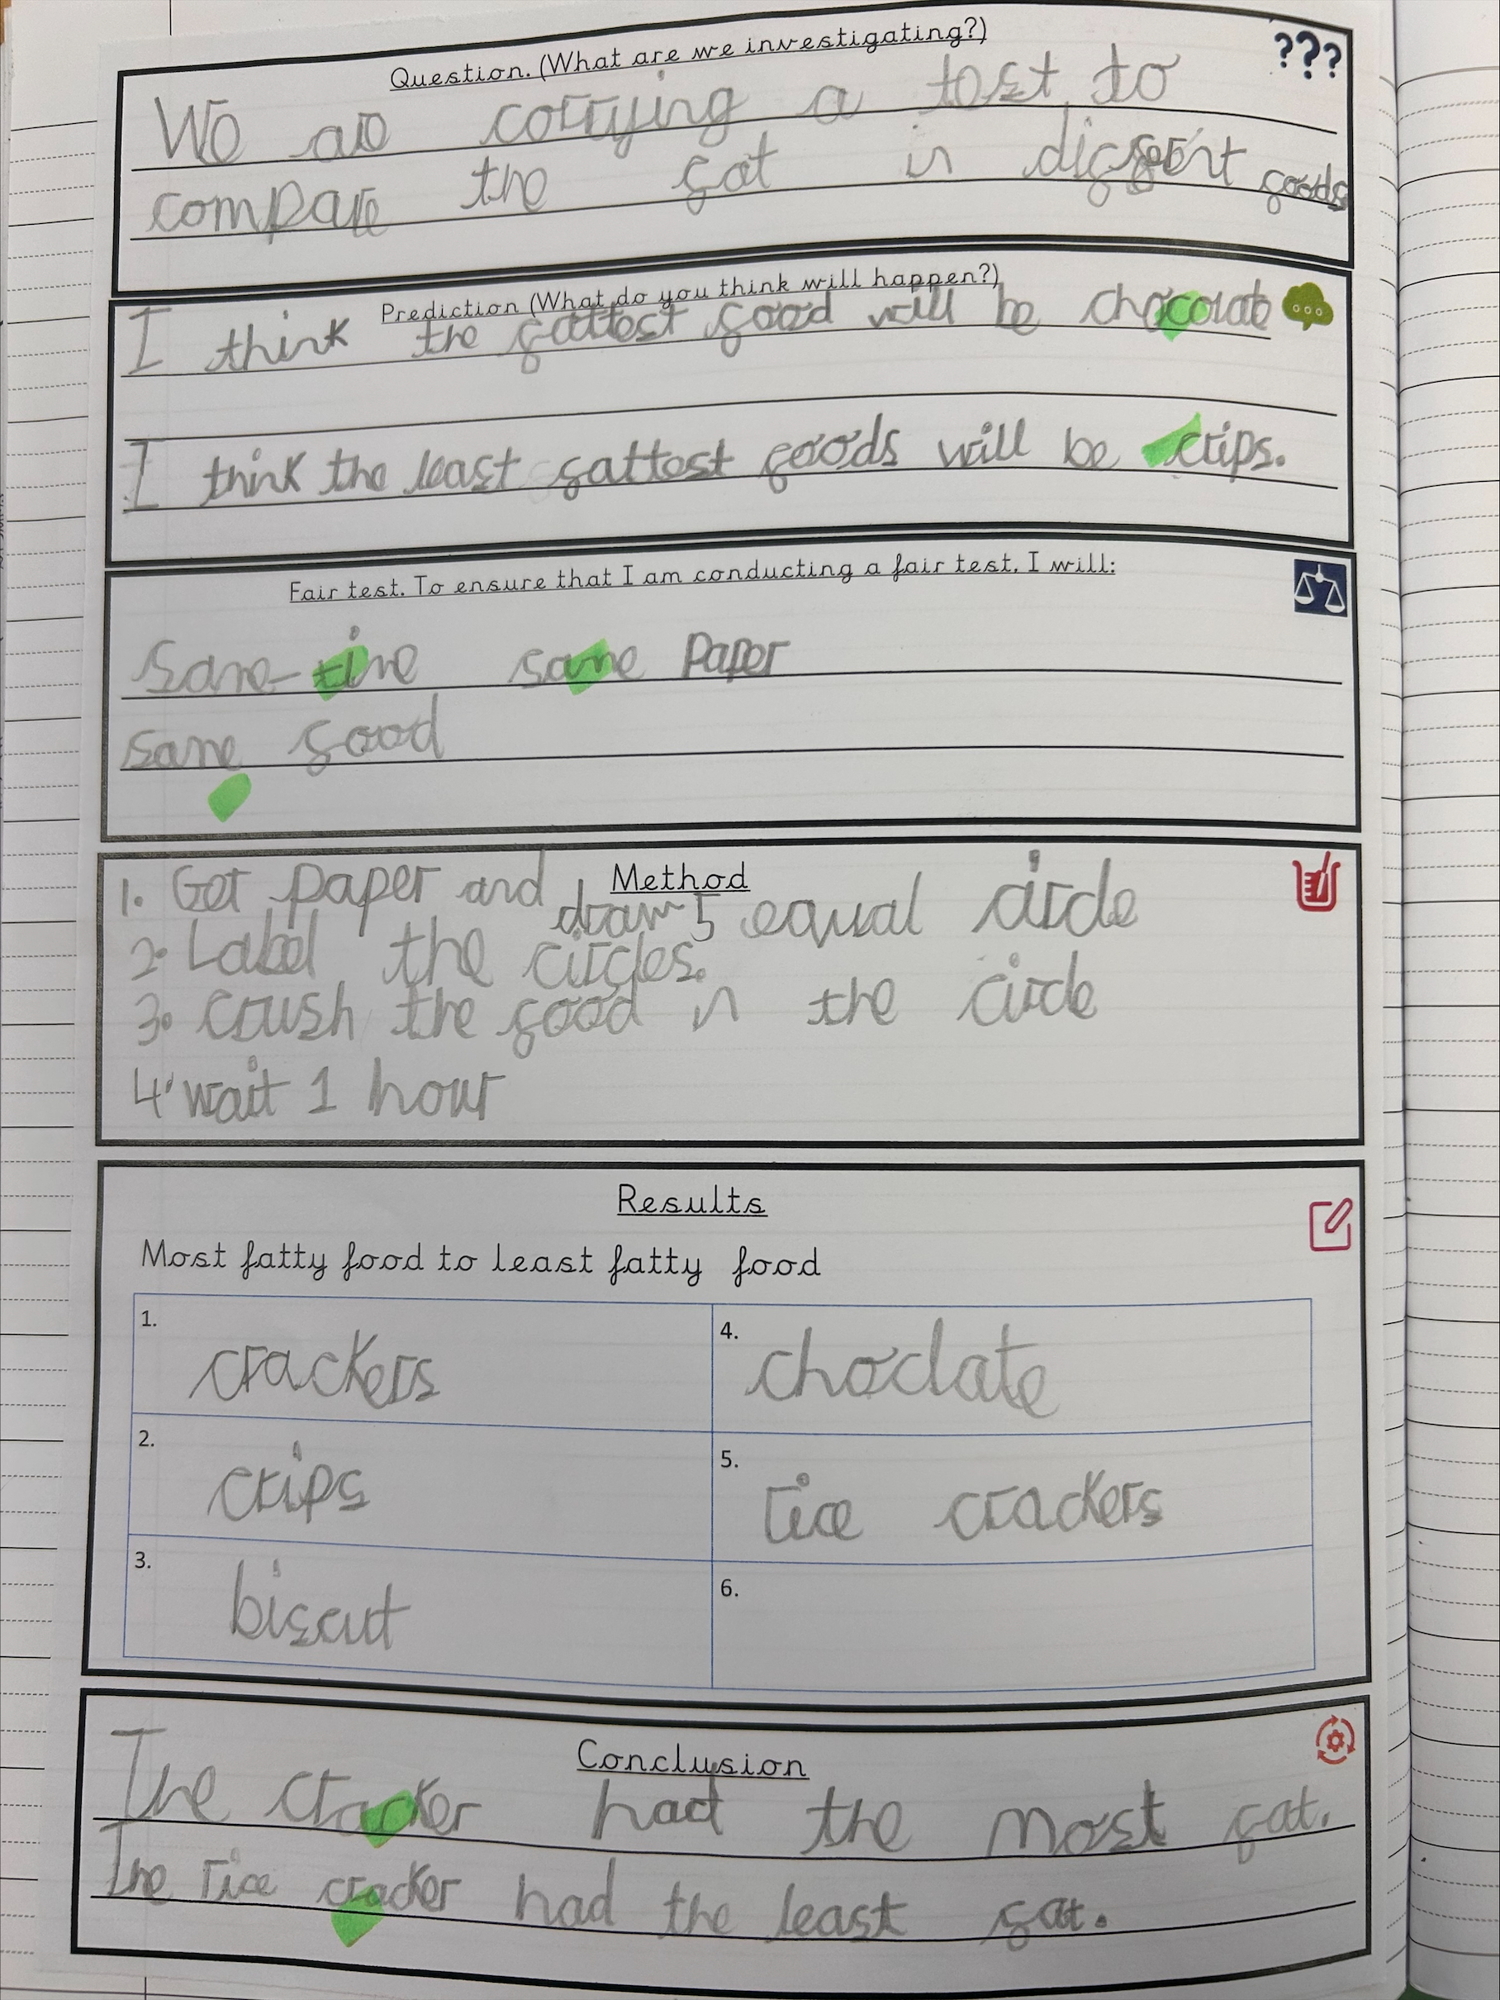 Question. (What are we investigating?)
???
We are corrying a test to
compare the fat in different foods
Prediction (What do you think will happen?)
I think the fattest food will be chocolate
I think the least fattest foods will be crips.
Fair test. To ensure that I am conducting a fair test, I will:
Same time same paper
same food
Method
1. Get paper and draw 5 equal circle
2. Label the circles.
3. Crush the food in the circle
4. wait 1 hour
Results
Most fatty food to least fatty food
1. crackers
2. crips
3. biscut
4. choclate
5. rice crackers
6.
Conclusion
The cracker had the most fat.
The rice cracker had the least fat.